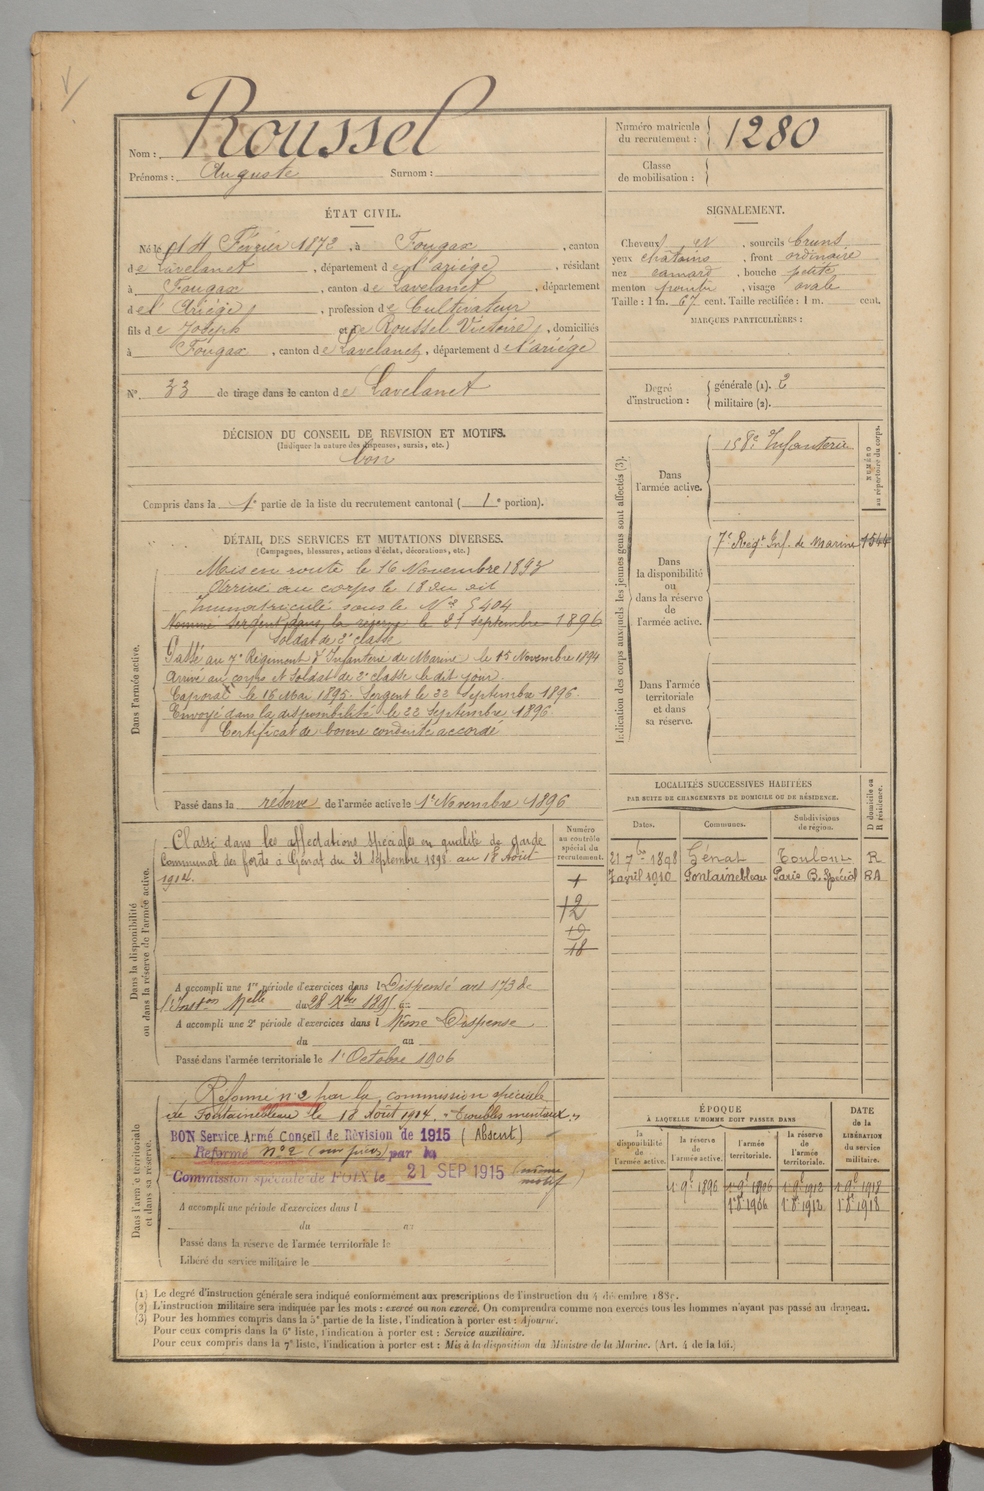 Nom : Roussel
Prénoms : Auguste Surnom :
Numéro matricule du recrutement : 1280
Classe de mobilisation :
ÉTAT CIVIL.
Né le 14 Février 1872, à Fougax, canton
de Lavelanet, département de l'ariége, résidant
à Fougax, canton de Lavelanet, département
de l'Ariége, profession de Cultivateur
fils de Joseph et de Roussel Victoire, domiciliés
à Fougax, canton de Lavelanet, département de l'ariége
N° 33 de tirage dans le canton de Lavelanet
SIGNALEMENT.
Cheveux et , sourcils bruns
yeux chatains , front ordinaire
nez camard , bouche petite
menton pointu , visage ovale
Taille : 1 m. 67 cent. Taille rectifiée : 1 m. cent.
MARQUES PARTICULIÈRES :
Degré d'instruction : générale (1). 2
militaire (2).
DÉCISION DU CONSEIL DE REVISION ET MOTIFS.
(Indiquer la nature des dispenses, sursis, etc.)
bon
Compris dans la 1e partie de la liste du recrutement cantonal ( 1e portion).
DÉTAIL DES SERVICES ET MUTATIONS DIVERSES.
(Campagnes, blessures, actions d'éclat, décorations, etc.)
Dans l'armée active.
Mis en route le 16 Novembre 1893
Arrivé au corps le 18 du dit
Immatriculé sous le N° 5404
Nommé sergent dans la réserve le 21 septembre 1896
Soldat de 2e classe
Passé au 7e Régiment d'Infanterie de Marine le 15 Novembre 1894
Arrivé au corps et Soldat de 2e classe le dit jour.
Caporal le 16 Mai 1895. Sergent le 22 Septembre 1896.
Envoyé dans la disponibilité le 22 Septembre 1896
Certificat de bonne conduite accordé
Passé dans la réserve de l'armée active le 1er Novembre 1896
Indication des corps auxquels les jeunes gens sont affectés (3).
NUMÉRO au répertoire du corps.
Dans l'armée active.
158e Infanterie
Dans la disponibilité ou dans la réserve de l'armée active.
7e Reg^t Inf. de Marine 1544
Dans l'armée territoriale et dans sa réserve.
LOCALITÉS SUCCESSIVES HABITÉES
PAR SUITE DE CHANGEMENTS DE DOMICILE OU DE RÉSIDENCE.
Dates. Communes. Subdivisions de région. D domicile ou R résidence.
21 7bre 1898 Génat Toulouse R
7 avril 1910 Fontainebleau Paris B. Spécial RA
Dans la disponibilité ou dans la réserve de l'armée active.
Numéro au contrôle spécial du recrutement.
Classé dans les affectations spéciales en qualité de garde
Communal des forêts à Génat du 21 septembre 1898 au 18 Août
1914.
12
19
18
A accompli une 1re période d'exercices dans l Dispensé art 173 de
l'Inst^on M^elle du 28 Xbre 1895 au
A accompli une 2e période d'exercices dans l Même Dispense
du au
Passé dans l'armée territoriale le 1er Octobre 1906
Dans l'armée territoriale et dans sa réserve.
Réformé n°2 par la commission spéciale
de Fontainebleau le 18 Août 1914. "Troubles mentaux"
BON Service Armé Conseil de Révision de 1915 (Absent)
Réformé n°2 (sur pièces) par la
Commission spéciale de FOIX le 21 SEP 1915 (même motif)
A accompli une période d'exercices dans l
du au
Passé dans la réserve de l'armée territoriale le
Libéré du service militaire le
ÉPOQUE
À LAQUELLE L'HOMME DOIT PASSER DANS
DATE de la LIBÉRATION du service militaire.
la disponibilité de l'armée active. la réserve de l'armée active. l'armée territoriale. la réserve de l'armée territoriale.
1 9e 1896 1 9e 1906 1 9e 1912 1 9e 1918
1 8e 1906 1 8e 1912 1 8e 1918
(1) Le degré d'instruction générale sera indiqué conformément aux prescriptions de l'instruction du 4 décembre 1889.
(2) L'instruction militaire sera indiquée par les mots : exercé ou non exercé. On comprendra comme non exercés tous les hommes n'ayant pas passé au drapeau.
(3) Pour les hommes compris dans la 5e partie de la liste, l'indication à porter est : Ajourné.
Pour ceux compris dans la 6e liste, l'indication à porter est : Service auxiliaire.
Pour ceux compris dans la 7e liste, l'indication à porter est : Mis à la disposition du Ministre de la Marine. (Art. 4 de la loi.)